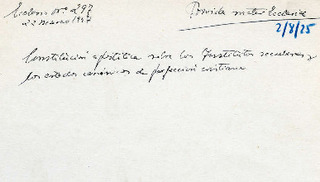 Ecclesia nº 297
22 Marzo 1947
Provida mater Ecclesia
2/8/25
Constitución apostólica sobre los Institutos seculares y
los estados canónicos de perfección cristiana